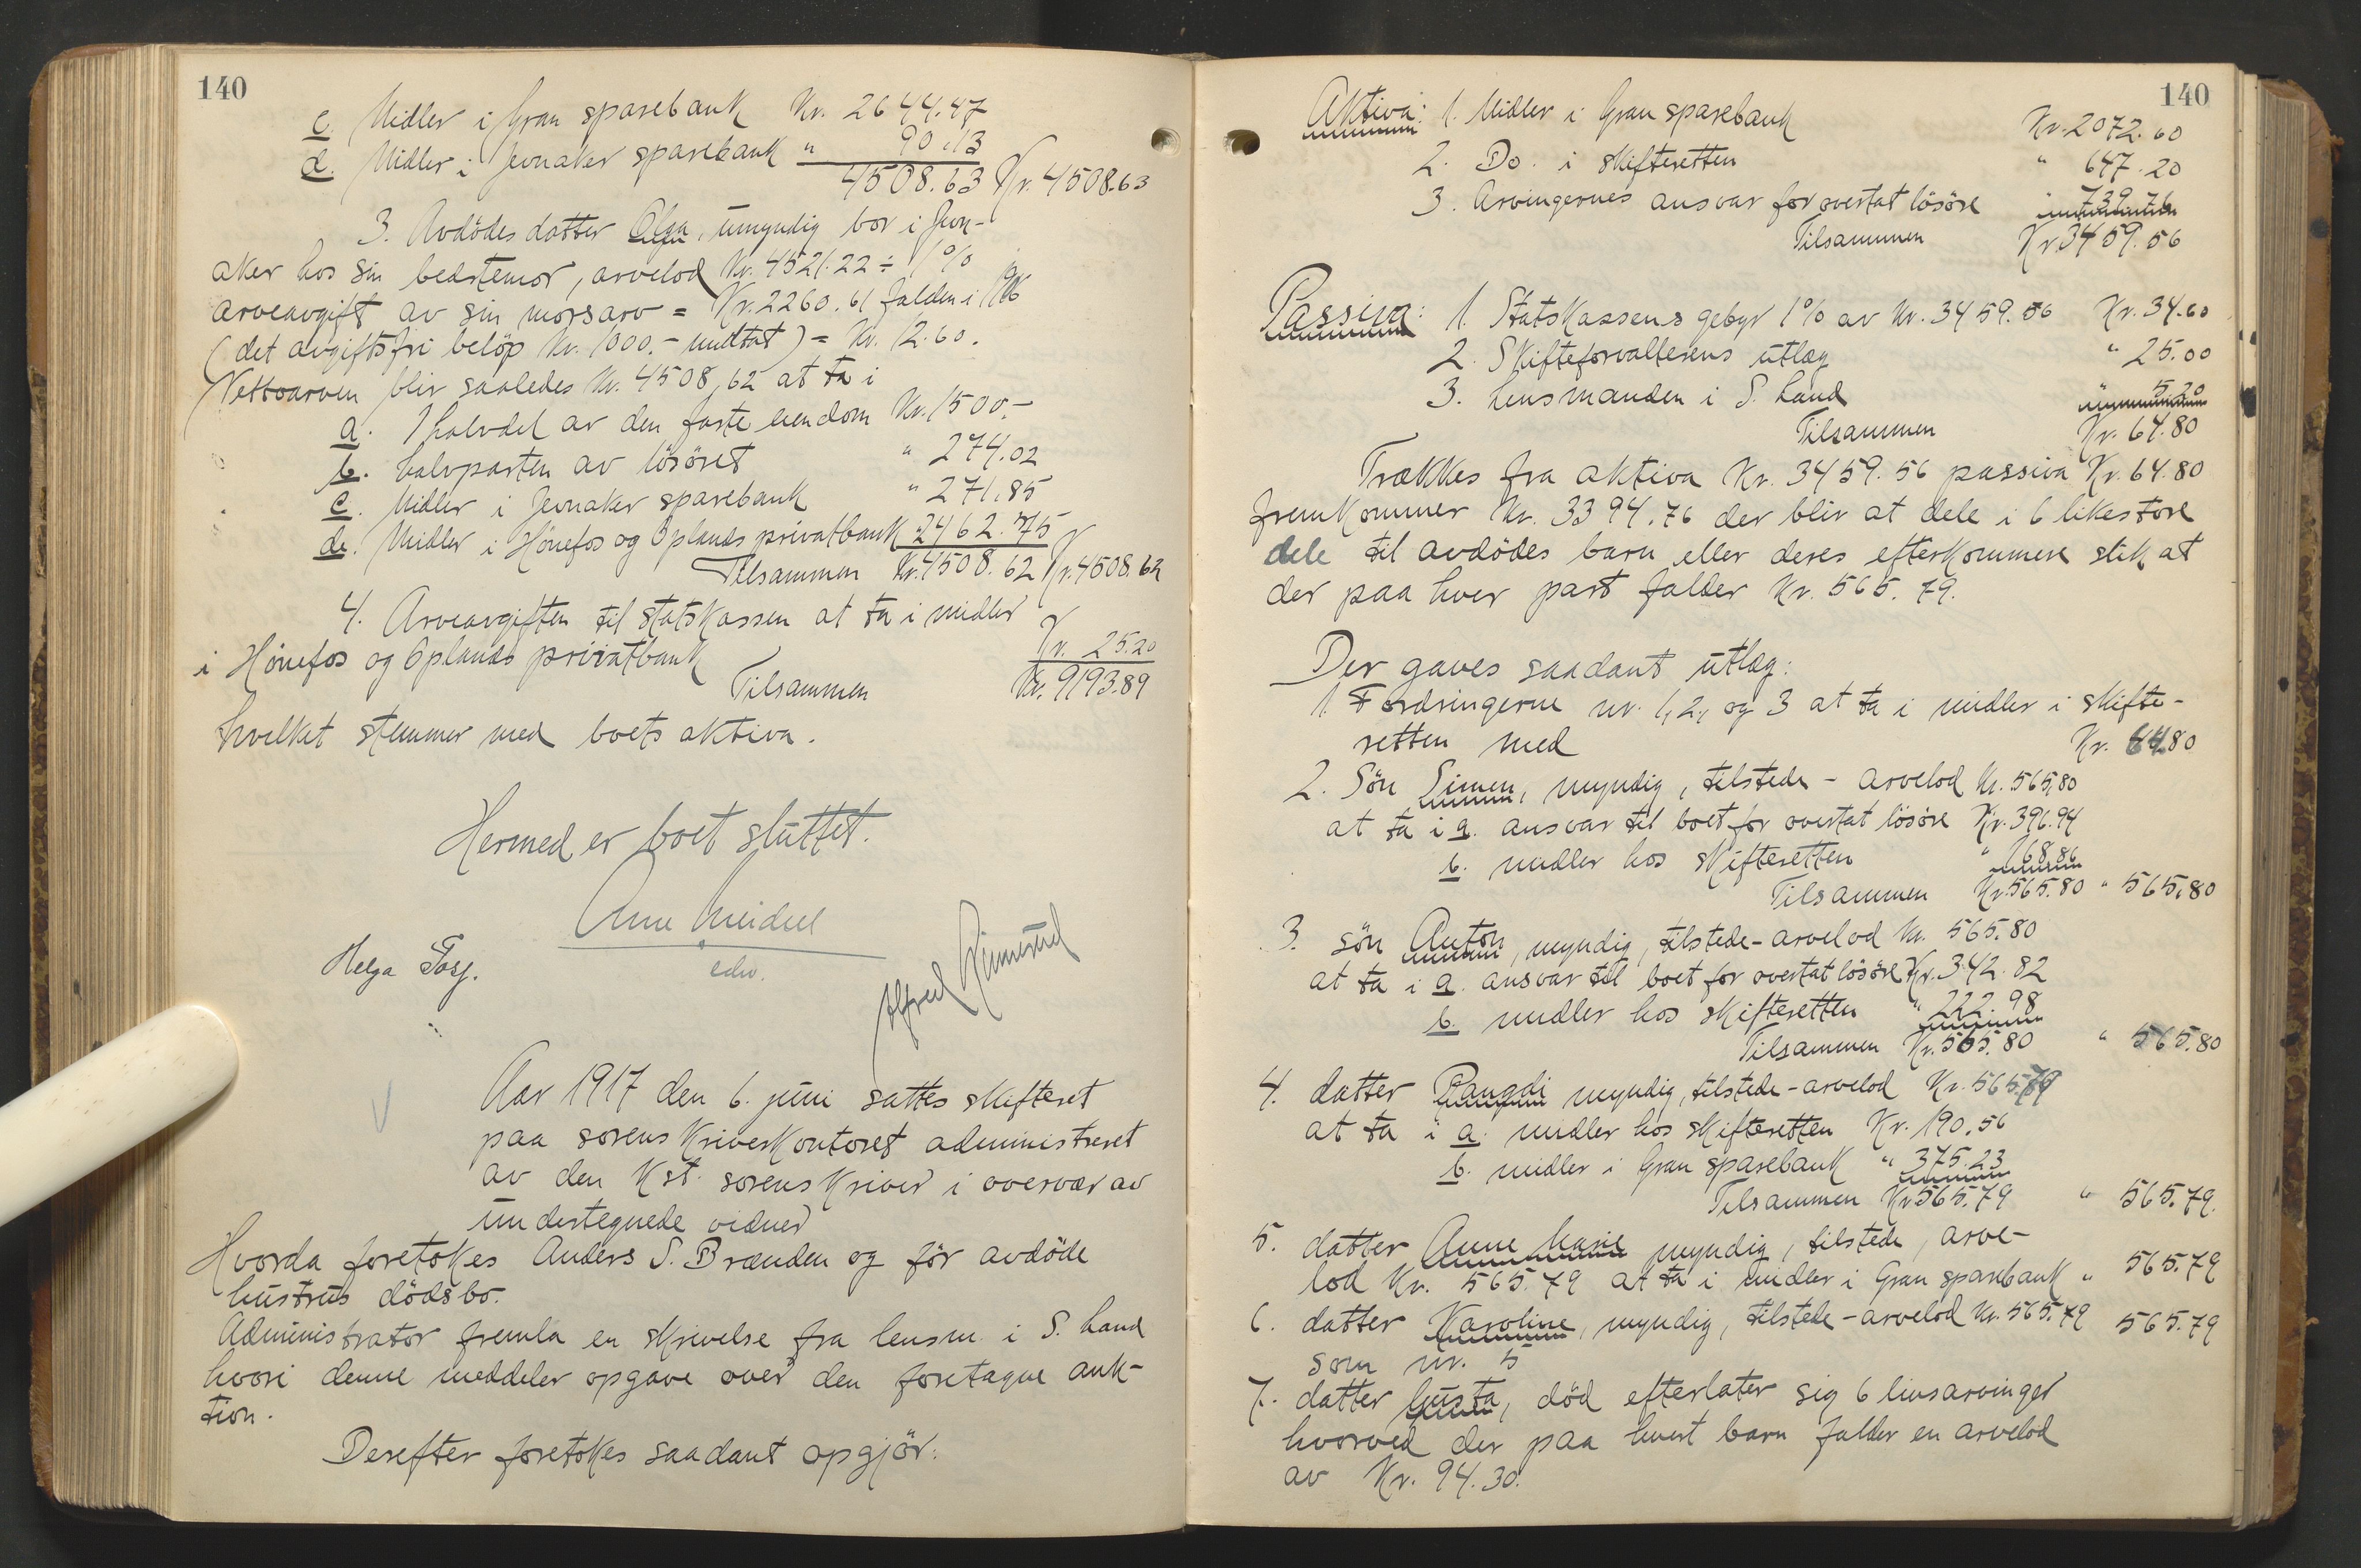 140
c. Midler i Gran sparebank Kr. 2644.47
d. Midler i Jevnaker sparebank " 90.13
4508.63 Kr. 4508.63
3. Avdödes datter Olga, umyndig bor i Jevn-
aker hos sin bedstemor, arvelod Kr. 4521.22 ÷ 1%
arveavgift av sin morsarv = Kr. 2260.61 falden i 1916
(det avgiftsfri belöp Kr. 1000.- undtat) = Kr. 12.60.
Nettoarven blir saaledes Kr. 4508,62 at ta i
a. 1 halvdel av den faste eiendom Kr. 1500.-
b. halvparten av lösöret " 274.02
c. Midler i Jevnaker sparebank " 271,85
d. Midler i Hönefos og Oplands privatbank " 2462.75
Tilsammen Kr. 4508.62 Kr. 4508.62
4. Arveavgiften til statskassen at ta i midler
i Hönefos og Oplands privatbank Kr. 25.20
Tilsammen Kr. 9193.89
hvilket stemmer med boets aktiva.
Hermed er boet sluttet.
Anne Meidell
edv.
Helga
Alfred
Aar 1917 den 6. juni sattes skifteret
paa sorenskriverkontoret administreret
av den Kst. sorenskriver i overvær av
undertegnede vidner
Hvorda foretokes Anders S. Brænden og för avdöde
hustrus dödsbo.
Administrator fremla en skrivelse fra lensm. i S. Land
hvori denne meddeler opgave over den foretagne auk-
tion.
Derefter foretokes saadant opgjör:
140
Aktiva: 1. Midler i Gran sparebank Kr. 2072.60
2. Do. i skifteretten " 647.20
3. Arvingernes ansvar for overtat lösöre " 739.76
Tilsammen Kr 3459.56
Passiva: 1. Statskassens gebyr 1% av Kr. 3459.56 Kr. 34.60
2. Skifteforvalterens utlæg " 25.00
3. Lensmanden i S. Land " 5.20
Tilsammen Kr. 64.80
Trækkes fra aktiva Kr. 3459.56 passiva Kr. 64.80
fremkommer Kr. 3394.76 der blir at dele i 6 likestore
dele til avdödes barn eller deres efterkommere slik at
der paa hver part falder Kr. 565.79.
Der gaves saadant utlæg:
1. Fordringerne nr. 1, 2, og 3 at ta i midler i skifte-
retten med Kr. 64.80
2. Sön Simen, myndig, tilstede - arvelod Kr. 565,80
at ta i a. ansvar til boet for overtat lösöre Kr. 396.94
b. midler hos skifteretten " 168.86
Tilsammen Kr. 565.80 " 565,80
3. sön Anton, myndig, tilstede - arvelod Kr. 565.80
at ta i a. ansvar til boet for overtat lösöre Kr. 342.82
b. midler hos skifteretten " 222.98
Tilsammen Kr. 565.80 " 565.80
4. datter Rangdi myndig, tilstede - arvelod Kr. 565.79
at ta i a. midler hos skifteretten Kr. 190.56
b. midler i Gran sparebank " 375.23
Tilsammen Kr 565.79 " 565.79.
5. datter Anne Marie myndig, tilstede, arve-
lod Kr. 565.79 at ta i midler i Gran sparebank " 565.79
6. datter Karoline, myndig, tilstede - arvelod Kr. 565.79 565.79
som nr. 5
7. datter Gusta, död efterlater sig 6 livsarvinger
hvorved der paa hvert barn falder en arvelod
av Kr. 94.30.